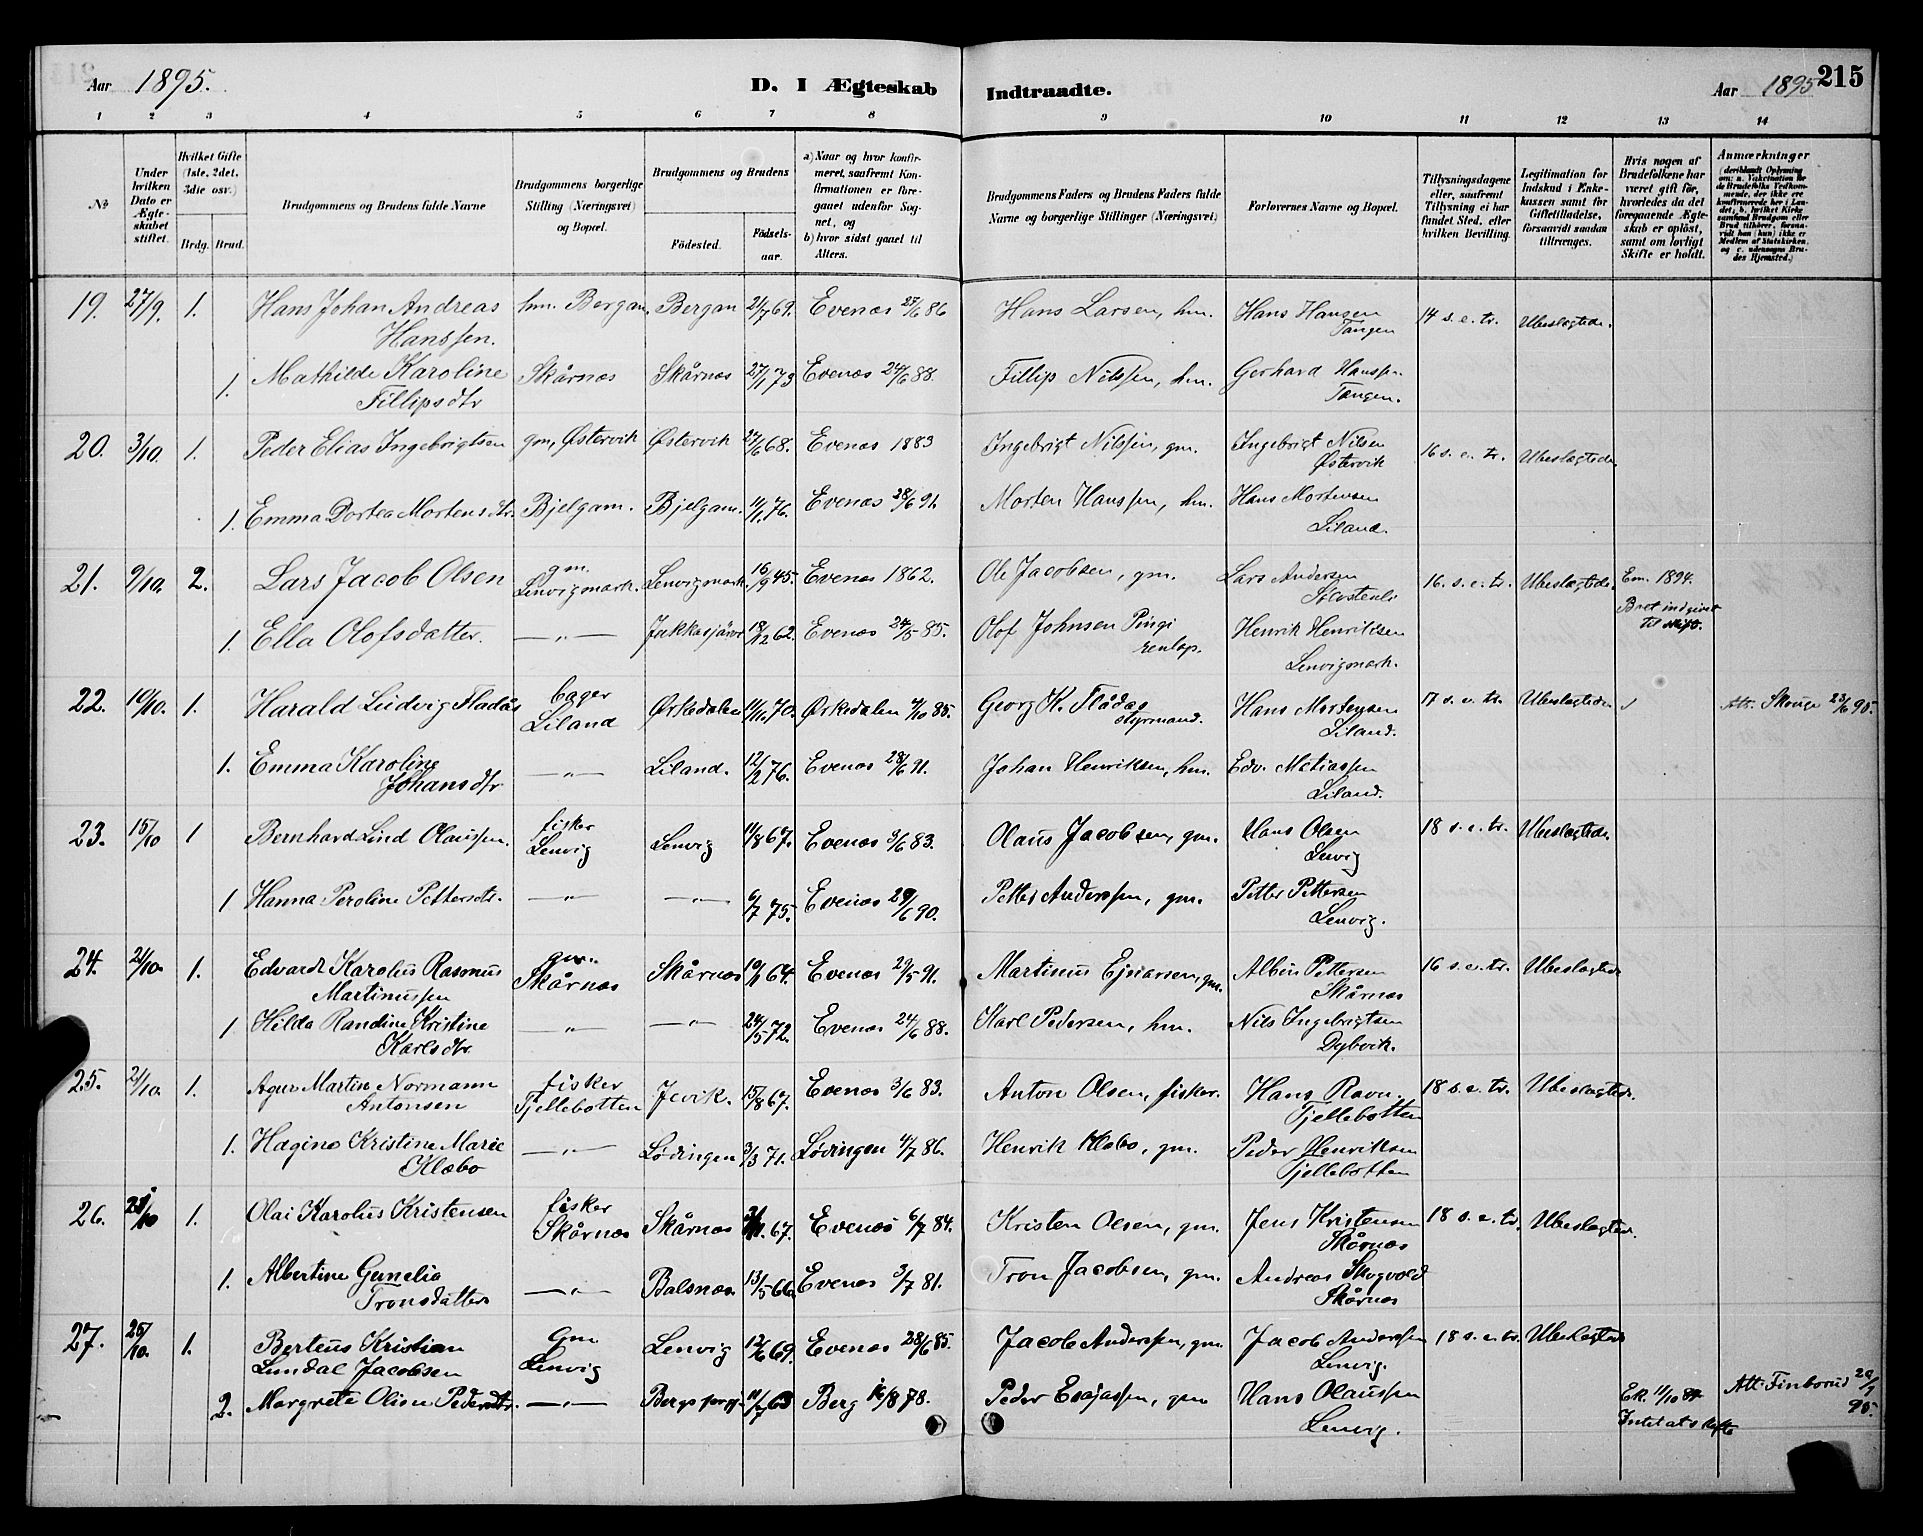 Aar 1895. D. I Ægteskab Indtraadte. Aar 1895 215
1 2 3 4 5 6 7 8 9 10 11 12 13 14
№
Under hvilken Dato er Ægteskabet stiftet.
Hvilket Gifte (1ste, 2det, 3die osv.)
Brdg. Brud.
Brudgommens og Brudens fulde Navne
Brudgommens borgerlige Stilling (Næringsvei) og Bopæl.
Brudgommens og Brudens
Födested. Födselsaar.
a) Naar og hvor konfirmeret, saafremt Konfirmationen er foregaaet udenfor Sognet, og
b) hvor sidst gaaet til Alters.
Brudgommens Faders og Brudens Faders fulde Navne og borgerlige Stillinger (Næringsvei)
Forlovernes Navne og Bopæl.
Tillysningsdagene eller, saafremt Tillysning ei har fundet Sted, efter hvilken Bevilling.
Legitimation for Indskud i Enkekassen samt for Giftetilladelse, forsaavidt saadan tiltrænges.
Hvis nogen af Brudefolkene har været gift før, hvorledes da det foregaaende Ægteskab er opløst, samt om lovligt Skifte er holdt.
Anmærkninger
19. 27/9. 1. Hans Johan Andreas Hanssen. hm. Bergan, Bergan 21/7 69. Evenæs 27/6 86 Hans Larsen, hm. Hans Hansen Tangen 14 s. e. tr. Ubeslægtede.
1. Mathilde Karoline Fillipsdtr Skårnæs Skårnæs 27/1 73 Evenæs 24/6 88. Fillip Nilssen, hm. Gerhard Hanssen Tangen.
20. 3/10. 1. Peder Elias Ingebrigtsen gm, Østervik Østervik 27/6 68. Evenæs 1883 Ingebrigt Nilssen, gm. Ingebrigt Nilsen Østervik 16 s. e. tr. Ubeslægtede.
1. Emma Dortea Mortensdtr. Bjelgam. Bjelgam. 11/1 76. Evenæs 28/6 91. Morten Hanssen, hm. Hans Mortensen Liland.
21. 9/10. 2. Lars Jacob Olsen gm. Lenvigmark. Lenvigmark. 16/9 45. Evenæs 1862. Ole Jacobsen, gm. Lars Andersen 16. s. e. tr. Ubeslægtede. Em. 1894. Bret indgivet til skift.
1. Ella Olofsdatter. —〃— Jukkasjärvi 18/12 62. Evenæs 24/5 85. Olof Johnsen Pingi renlap. Henrik Henriksen Lenvigmark.
22. 10/10. 1. Harald Ludvig Fladås bager Liland Ørkedalen 11/11 70. Ørkedalen 4/10 85. Georg K. Flådås styrmand. Hans Mortensen Liland. 17 s. e. tr. Ubeslægtede. Att. Skouge 23/6 95.
1. Emma Karoline Johansdtr —〃— Liland. 12/2 76. Evenæs 28/6 91. Johan Henriksen, hm. Edv. Matiassen Liland.
23. 15/10 1 Bernhard Lind Olaussen. fisker Lenvig Lenvig 11/8 67. Evenæs 3/6 83. Olaus Jacobsen, gm. Hans Olsen Lenvig 18 s. e. tr. Ubeslægtede.
1 Hanna Peroline Pettersdtr. —〃— —〃— 6/7 75. Evenæs 29/6 90. Petter Anderssen, gm. Petter Pettersen Lenvig.
24. 21/10. 1. Edvard Karolus Rasmus Martinussen gm. Skårnæs Skårnæs 10/11 64. Evenæs 29/5 91. Martinus Ejnarsen, gm. Albin Pettersen Skårnæs 16 s. e. tr. Ubeslægtede
1 Hilda Randine Kristine Karlsdtr. —〃— —〃— 24/5 72. Evenæs 24/6 88. Karl Pedersen, hm. Nils Ingebrigtsen Dybvik.
25. 21/10. 1. Martin Normann Antonsen fisker Tjellebotten Jevik. 15/8 67. Evenæs 3/6 83. Anton Olsen, fisker. Hans Ravn. Tjellebotten 18 s. e. tr. Ubeslægtede.
1. Hagina Kristine Marie Klæbo —〃— Lødingen 3/3 71. Lødingen 4/7 86. Henrik Klæbo, gm. Peder Henriksen Tjellebotten
26. 1. Olai Karolus Kristensen fisker Skårnæs Skårnæs 67. Evenæs 6/7 84. Kristen Olsen, gm. Jens Kristensen Skårnæs 18 s. e. tr. Ubeslægtede.
1. Albertine Gunelia Tronsdatter —〃— Balsnæs 13/5 66. Evenæs 3/7 81. Tron Jacobsen, gm. Andreas Skogvold Skårnæs
27. 25/10. 1. Berteus Kristian Lundal Jacobsen Gm Lenvig Lenvig 12/6 69. Evenæs 28/6 85. Jacob Anderssen, gm. Jacob Anderssen Lenvig. 18 s. e. tr. Ubeslægtede
2. Margrete Olion Pedersdtr. —〃— Berg 11/7 63 Berg 16/8 78. Peder Esajassen, gm Hans Olaussen Lenvig. Ek. 11/10 Intet at skifte Att. Finborud 20/7 95.